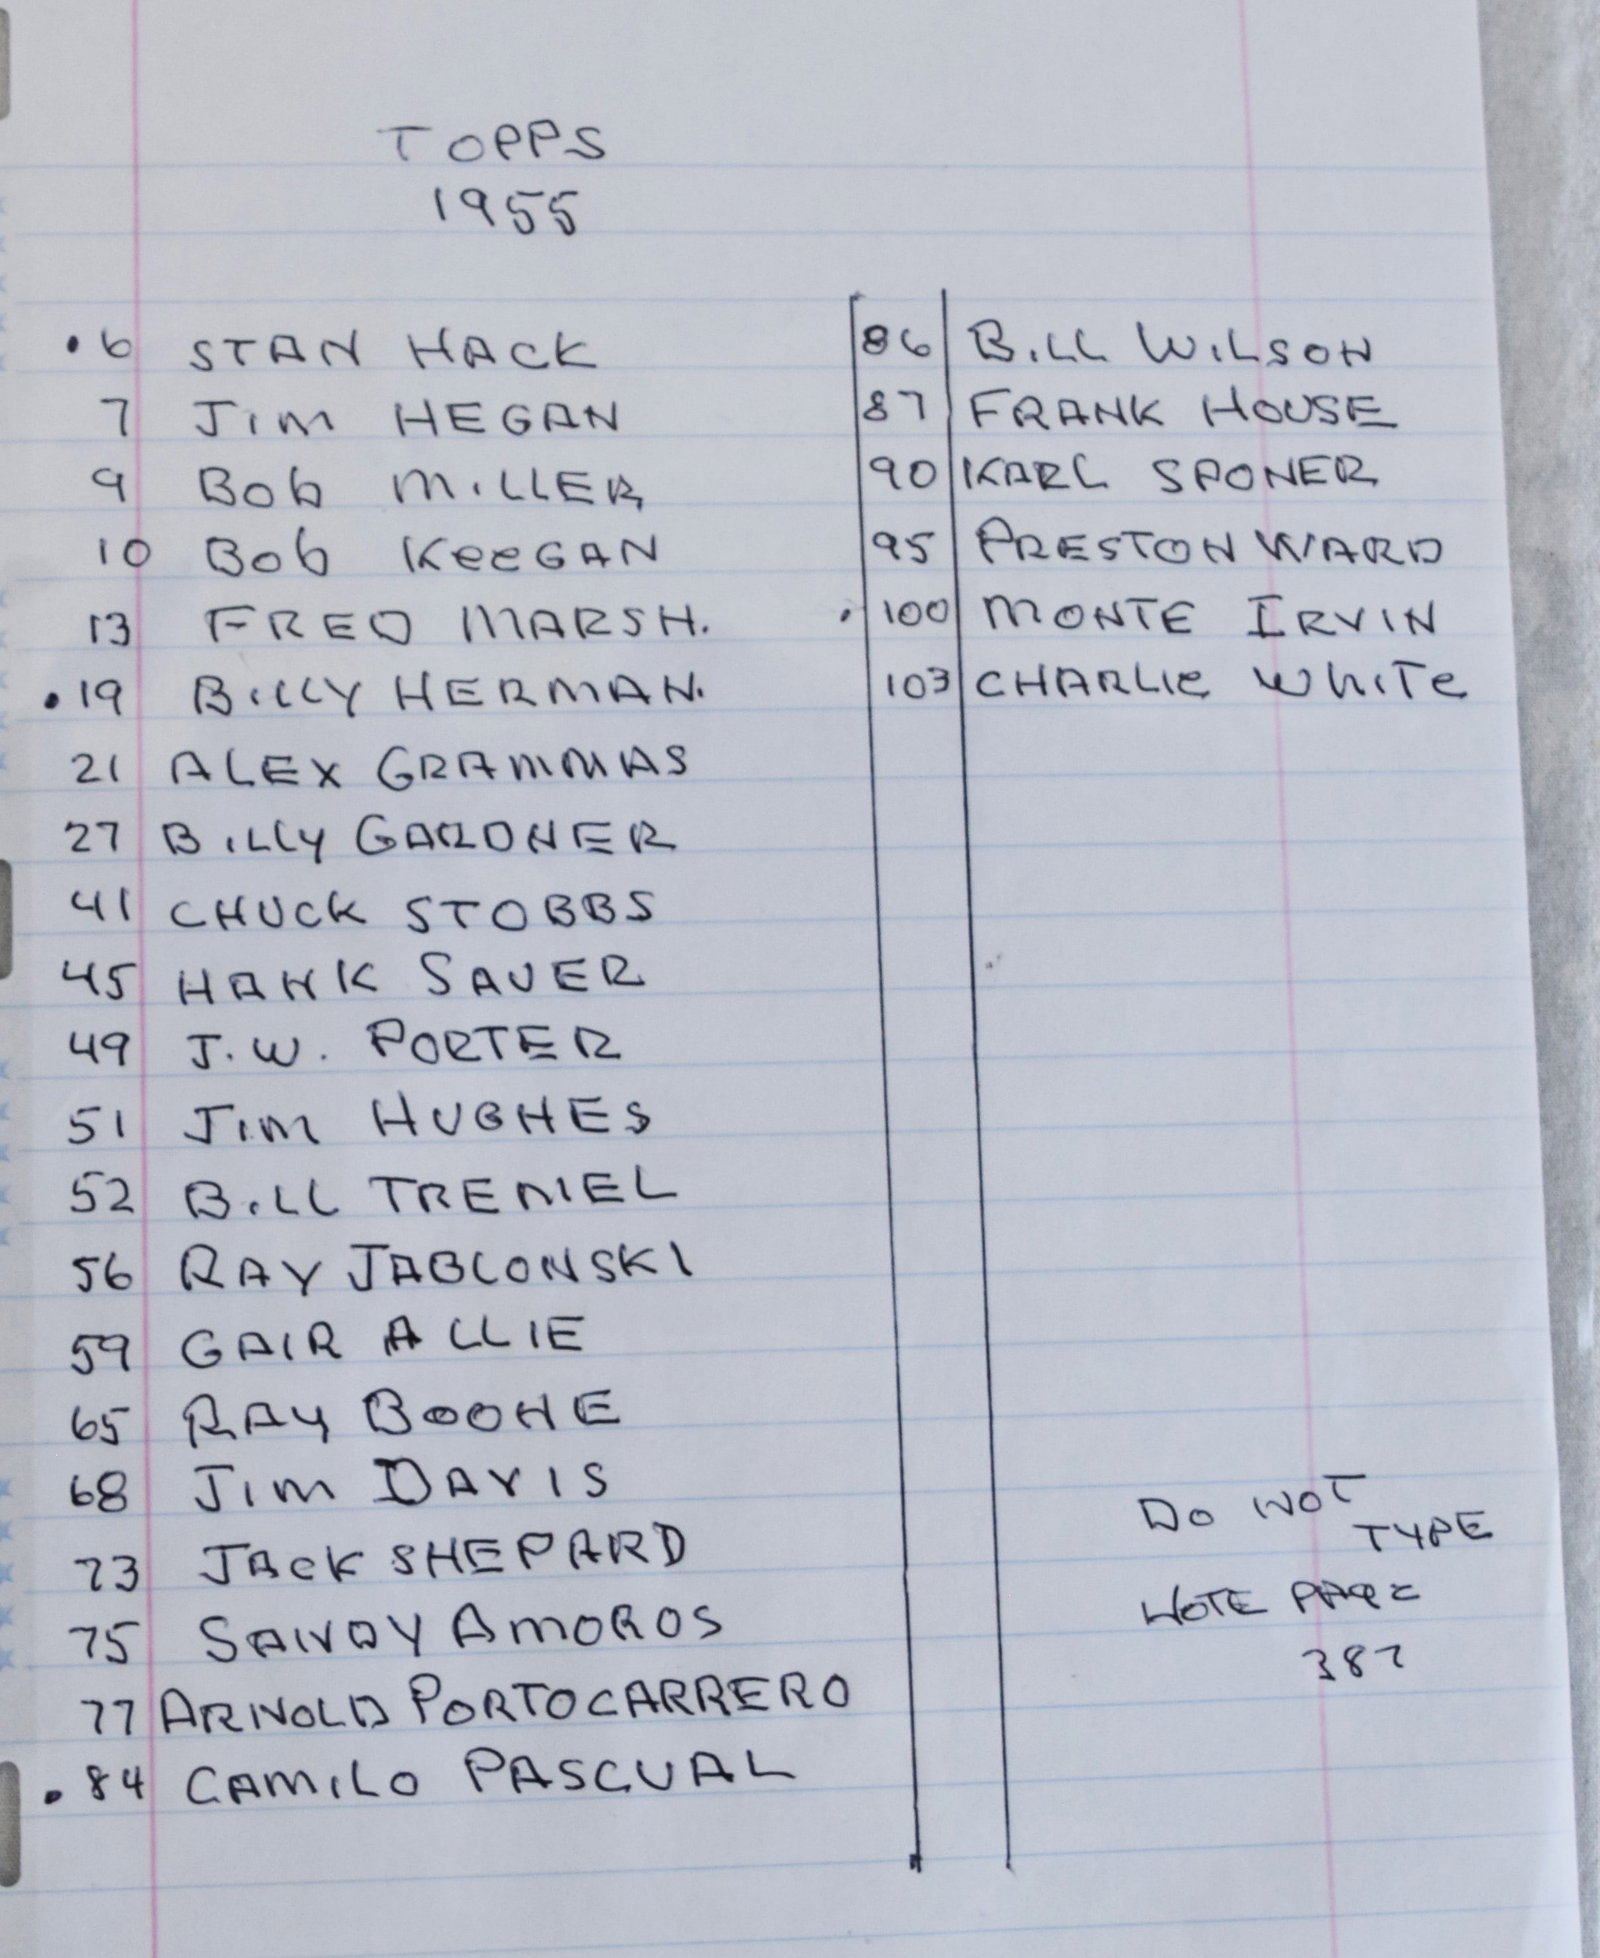 TOPPS
1955
• 6 STAN HACK
7 JIM HEGAN
9 Bob MILLER
10 Bob KeeGAN
13 FRED MARSH.
• 19 BILLY HERMAN.
21 ALEX GRAMMAS
27 BILLY GARDNER
41 CHUCK STOBBS
45 HANK SAUER
49 J.W. PORTER
51 JIM HUGHES
52 BILL TREMEL
56 RAY JABLONSKI
59 GAIR ALLIE
65 RAY BOONE
68 JIM DAVIS
73 JACK SHEPARD
75 SANDY AMOROS
77 ARNOLD PORTOCARRERO
• 84 CAMILO PASCUAL
86 BILL WILSON
87 FRANK HOUSE
90 KARL SPONER
95 PRESTON WARD
• 100 MONTE IRVIN
103 CHARLIE WHITE
DO NOT
TYPE
NOTE
387